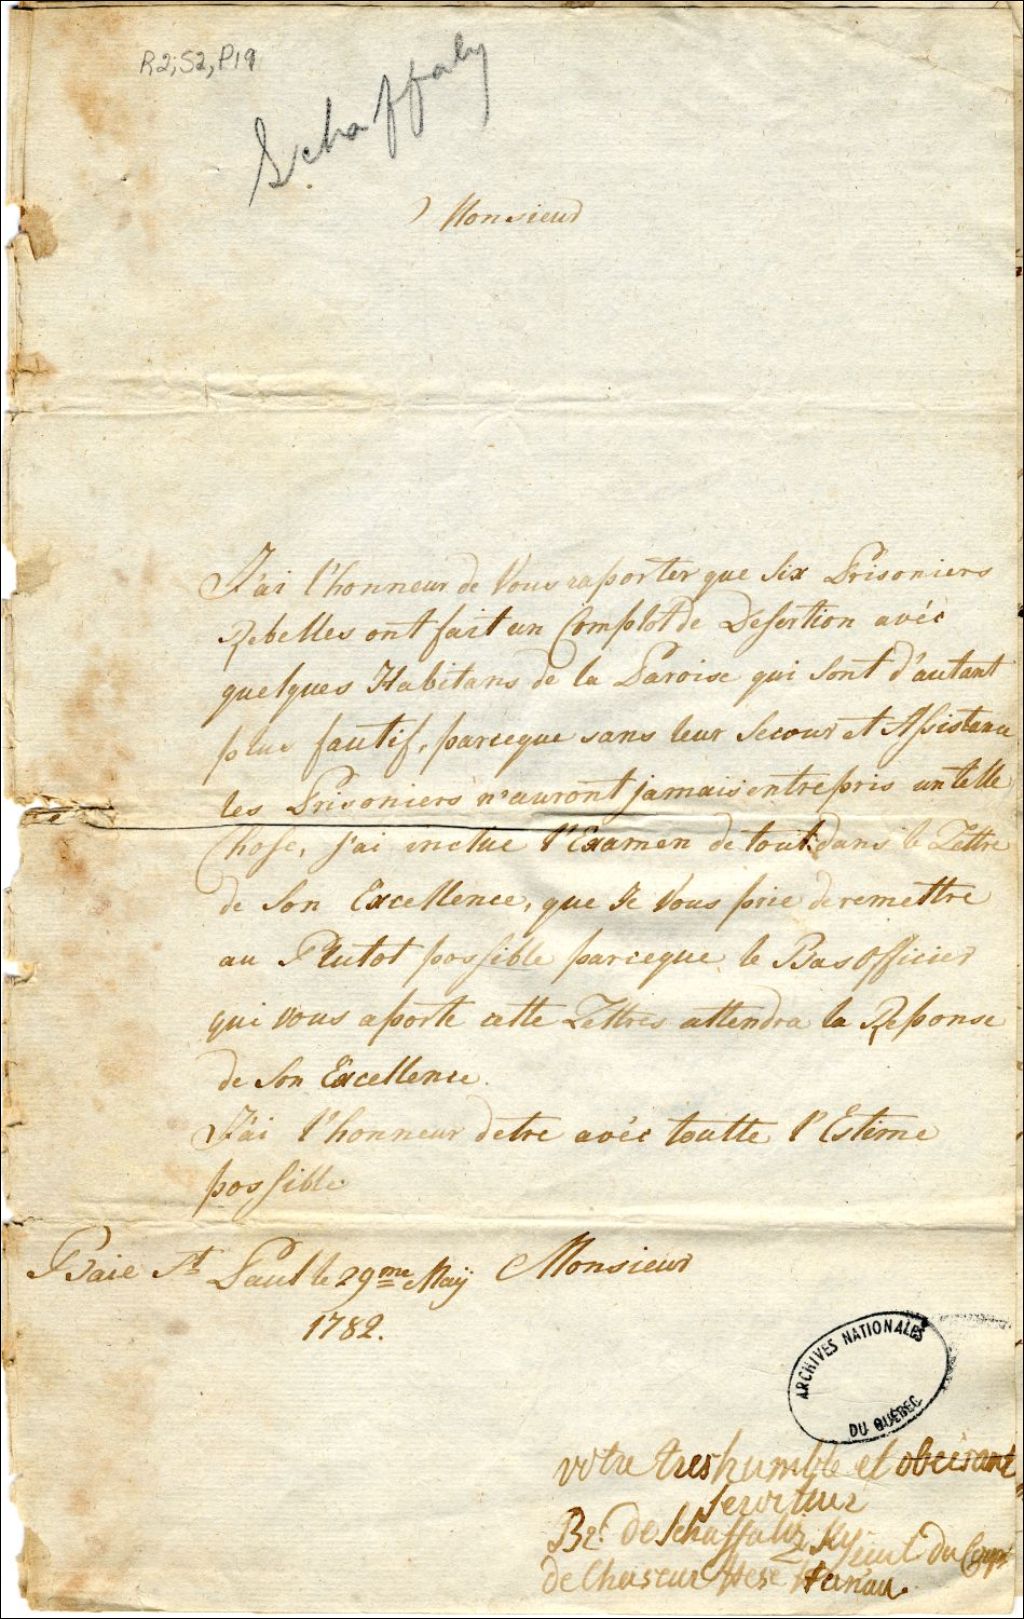 R2;S2,P19
Schaffaly
Monsieur
J'ai l'honneur de Vous raporter que Six Prisoniers
Rebelles ont fait un Complot de Desertion avéc
quelques Habitans de la Paroise qui Sont d'autant
plus fautif, parceque sans leur Secour et Assistance
les Prisoniers n'auront jamais entrepris un telle
Chose, j'ai inclue l'Examen de tout dans le Lettre
de Son Excellence, que Je Vous prie de remettre
au Plutot possible parceque le Bas Officier
qui vous aporte cette Lettres attendra la Reponse
de Son Excellence.
J'ai l'honneur detre avéc toutte l'Estime
possible
Baie St. Paul le 29me Maÿ Monsieur
1782.
ARCHIVES NATIONALES
DU QUÉBEC
votre tres humble et obeisant
serviteur
Br. de Schaffaliz du Corps
de Chaseur Hese Hanau.